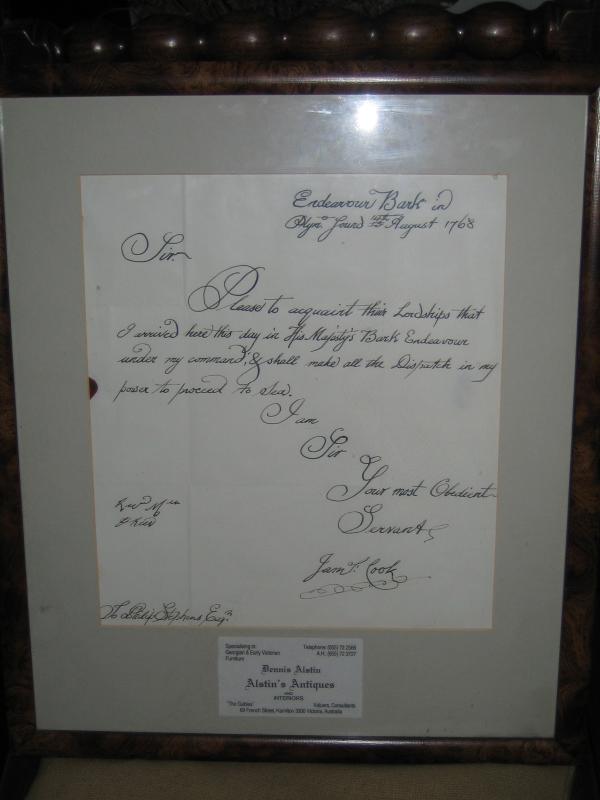 Endeavour Bark in
Plymo. Sound 14th August 1768
Sir
Please to acquaint thier Lordships that
I arrived here this day in His Majesty's Bark Endeavour
under my command, & shall make all the Dispatch in my
power to proceed to Sea.
I am
Sir
Your most Obedient
Servant
Jams. Cook
To Philip Stephens Esqr.
Specialising in: Telephone: (055) 72 2566
Georgian & Early Victorian A.H. (055) 72 3737
Furniture
Dennis Alstin
Alstin's Antiques
AND
INTERIORS
"The Gables" Valuers, Consultants
69 French Street, Hamilton 3300 Victoria, Australia